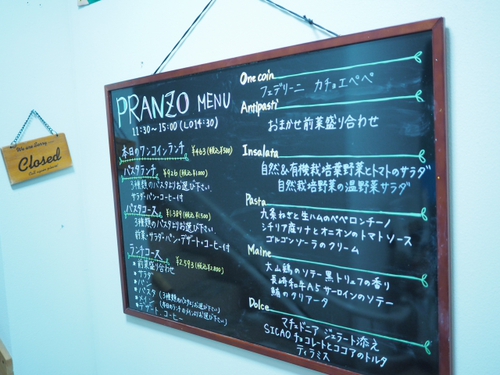 We are Sorry...
Closed
PRANZO MENU
11:30~15:00 (LO14:30)
本日のワンコインランチ ¥463(税込¥500)
パスタランチ ¥926(税込¥1,000)
3種類のパスタよりお選び下さい。
サラダ・パン・コーヒー付
パスタコース ¥1,389(税込¥1,500)
3種類のパスタよりお選び下さい。
前菜・サラダ・パン・デザート・コーヒー付
ランチコース ¥2,593(税込¥2,800)
*前菜盛り合わせ
*サラダ
*パン
*パスタ (3種類のパスタよりお選び下さい)
*メイン
*デザート、コーヒー
One coin
フェデリーニ カチョエペペ
Antipasti
おまかせ前菜盛り合わせ
Insalata
自然&有機栽培葉野菜とトマトのサラダ
自然栽培野菜の温野菜サラダ
Pasta
九条ねぎと生ハムのペペロンチーノ
シチリア産リナとオニオンのトマトソース
ゴルゴンゾーラのクリーム
Maine
大山鶏のソテー 黒トリュフの香り
長崎和牛A5サーロインのソテー
鯛のクリアータ
Dolce
マチェドニア ジェラート添え
SICAOチョコレートとココアのトルタ
ティラミス